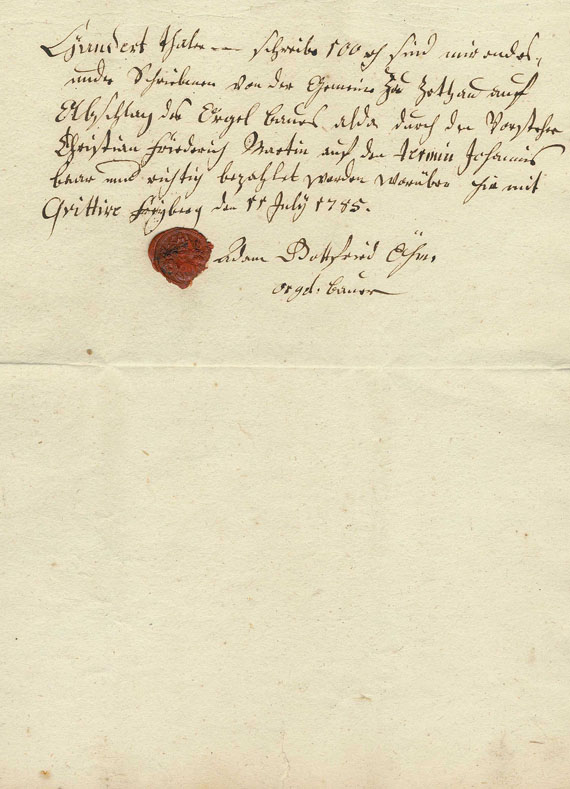 Hundert thaler --- schreibe 100 rh sind mir endes,
under Schriebenen von der Gemeine zu Zethau auf
Abschlag des Orgel baues alda durch den Vorsteher
Christian Friederich Martin auf den termin Johannis
baar und richtig bezahlet worden worüber hir mit
Qvittire Freyberg den 11 July 1785.
Adam Gottfried Öhm.
orgel: bauer